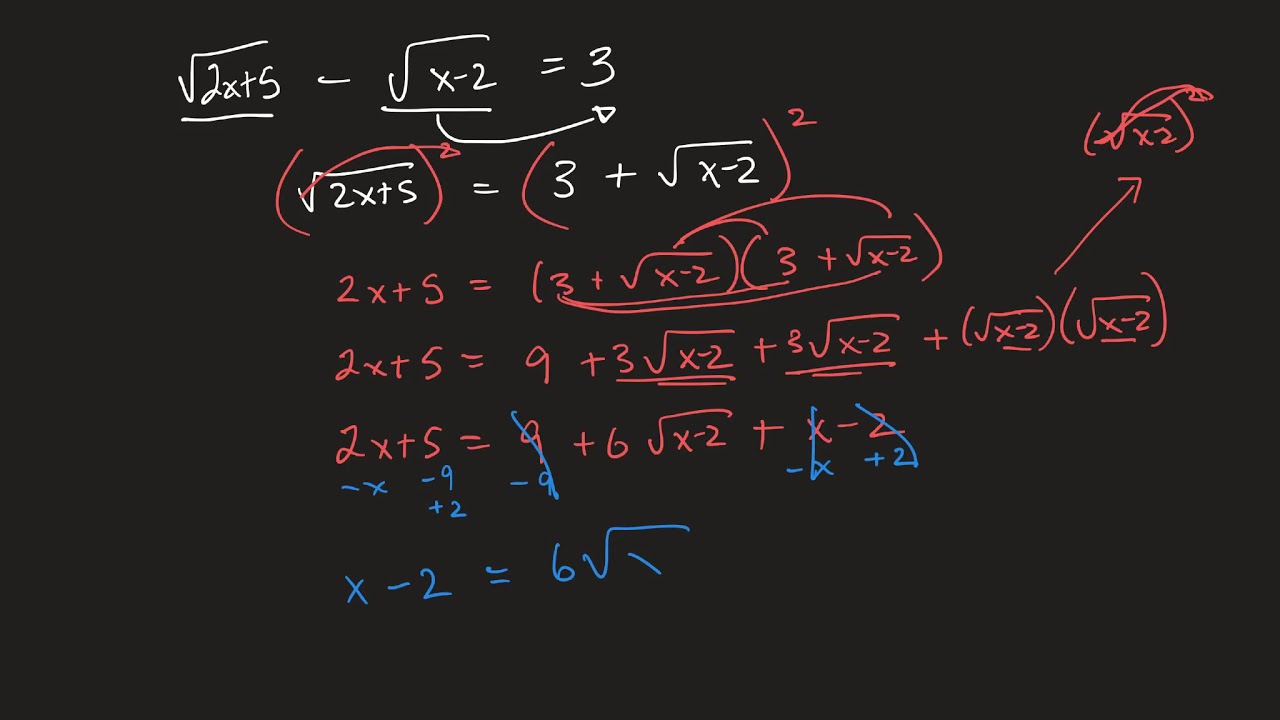 √2x+5 - √x-2 = 3
(√2x+5)² = (3 + √x-2)²
(√x-2)²
2x+5 = (3 + √x-2)(3 + √x-2)
2x+5 = 9 + 3√x-2 + 3√x-2 + (√x-2)(√x-2)
2x+5 = 9 + 6√x-2 + x-2
-x -9 -9 -x +2
+2
x-2 = 6√